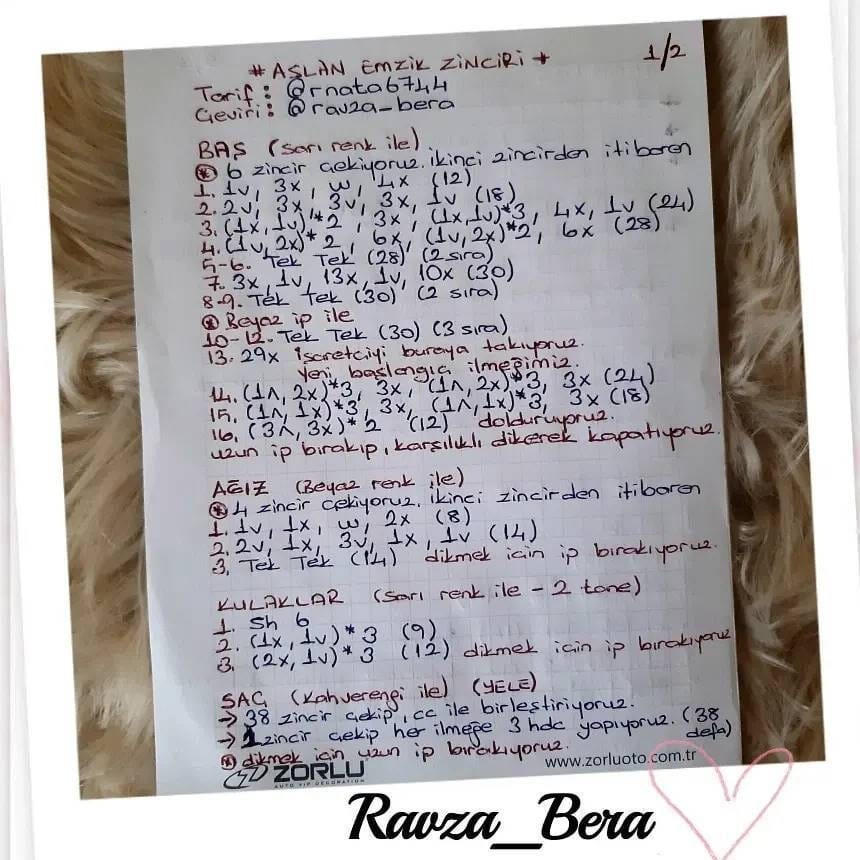 * ASLAN EMZİK ZİNCİRİ *
1/2
Tarif: @rnata6744
Çeviri: @ravza_bera
BAŞ (Sarı renk ile)
* 6 zincir çekiyoruz. ikinci zincirden itibaren
1. 1v, 3x, w, 4x (12)
2. 2v, 3x, 3v, 3x, 1v (18)
3. (1x, 1v)*2, 3x, (1x, 1v)*3, 4x, 1v (24)
4. (1v, 2x)*2, 6x, (1v, 2x)*2, 6x (28)
5-6. Tek Tek (28) (2 sıra)
7. 3x, 1v, 13x, 1v, 10x (30)
8-9. Tek Tek (30) (2 sıra)
* Beyaz ip ile
10-12. Tek Tek (30) (3 sıra)
13. 29x İşaretçiyi buraya takıyoruz.
Yeni başlangıç ilmeğimiz.
14. (1ʌ, 2x)*3, 3x, (1ʌ, 2x)*3, 3x (24)
15. (1ʌ, 1x)*3, 3x, (1ʌ, 1x)*3, 3x (18)
16. (3ʌ, 3x)*2 (12) dolduruyoruz.
uzun ip bırakıp, karşılıklı dikerek kapatıyoruz.
AĞIZ (Beyaz renk ile)
* 4 zincir çekiyoruz. ikinci zincirden itibaren
1. 1v, 1x, w, 2x (8)
2. 2v, 1x, 3v, 1x, 1v (14)
3. Tek Tek (14) dikmek için ip bırakıyoruz.
KULAKLAR (Sarı renk ile - 2 tane)
1. Sh 6
2. (1x, 1v)*3 (9)
3. (2x, 1v)*3 (12) dikmek için ip bırakıyoruz
SAÇ (Kahverengi ile) (YELE)
→ 38 zincir çekip, cc ile birleştiriyoruz.
→ 1 zincir çekip her ilmeğe 3 hdc yapıyoruz. (38 defa)
* dikmek için uzun ip bırakıyoruz.
ZORLU
AUTO VIP DECORATION
www.zorluoto.com.tr
Ravza_Bera